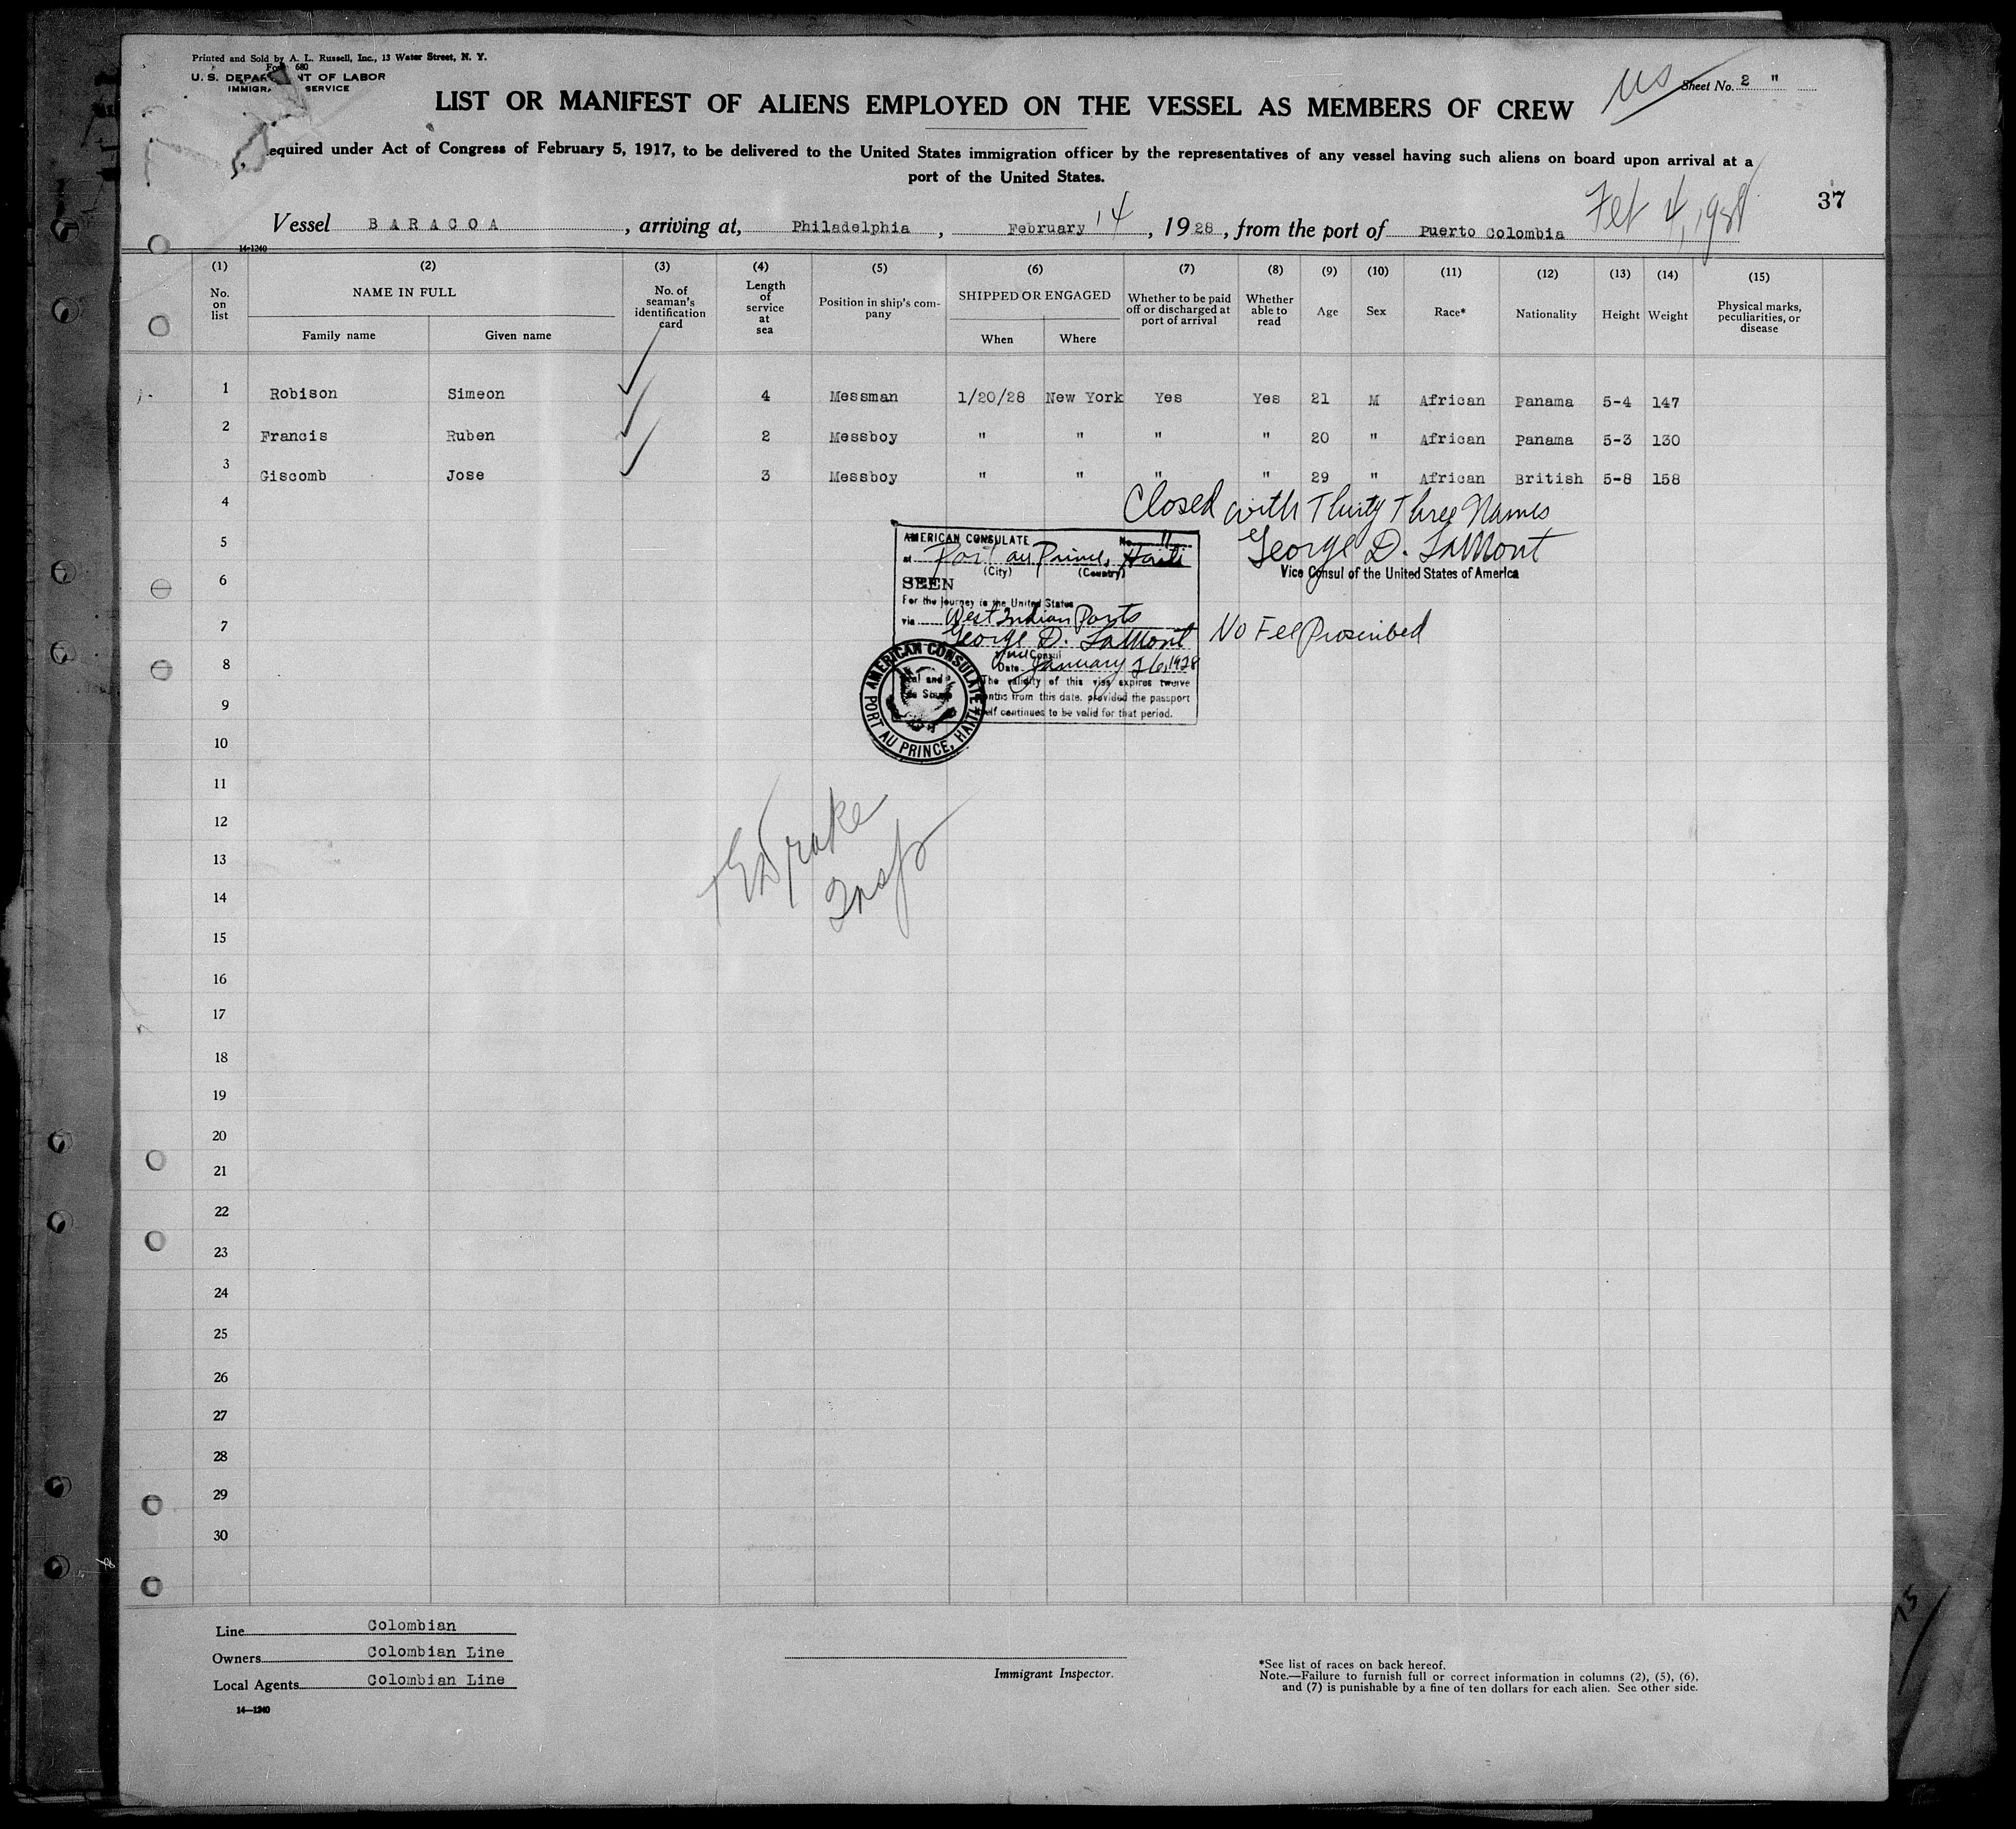 Printed and Sold by A. L. Russell, Inc., 13 Water Street, N. Y.
680
U. S. DEPA NT OF LABOR
IMMIGRA SERVICE
US
Sheet No. 2 "
LIST OR MANIFEST OF ALIENS EMPLOYED ON THE VESSEL AS MEMBERS OF CREW
equired under Act of Congress of February 5, 1917, to be delivered to the United States immigration officer by the representatives of any vessel having such aliens on board upon arrival at a
port of the United States.
37
Feb 4, 1928
Vessel BARACOA, arriving at, Philadelphia, February 14, 1928, from the port of Puerto Colombia
14-1240
(1) (2) (3) (4) (5) (6) (7) (8) (9) (10) (11) (12) (13) (14) (15)
No. on list NAME IN FULL Family name Given name No. of seaman's identification card Length of service at sea Position in ship's company SHIPPED OR ENGAGED When Where Whether to be paid off or discharged at port of arrival Whether able to read Age Sex Race* Nationality Height Weight Physical marks, peculiarities, or disease
1 Robison Simeon 4 Messman 1/20/28 New York Yes Yes 21 M African Panama 5-4 147
2 Francis Ruben 2 Messboy " " " " 20 " African Panama 5-3 130
3 Giscomb Jose 3 Messboy " " " " 29 " African British 5-8 158
4
Closed with Thirty Three Names
5
George D. LaMont
Vice Consul of the United States of America
AMERICAN CONSULATE No. 11
at Port au Prince, Haiti
(City) (Country)
6
SEEN
For the journey to the United States
via West Indian Ports
7
No Fee Prescribed
George D. LaMont
Vice Consul
8
Date January 26, 1928
The validity of this visa expires twelve
months from this date, provided the passport
self continues to be valid for that period.
AMERICAN CONSULATE
PORT AU PRINCE, HAITI
9
10
11
12
13
Drake
Insp
14
15
16
17
18
19
20
21
22
23
24
25
26
27
28
29
30
Line Colombian
Owners Colombian Line
Local Agents Colombian Line
14—1240
Immigrant Inspector.
*See list of races on back hereof.
Note.—Failure to furnish full or correct information in columns (2), (5), (6),
and (7) is punishable by a fine of ten dollars for each alien. See other side.